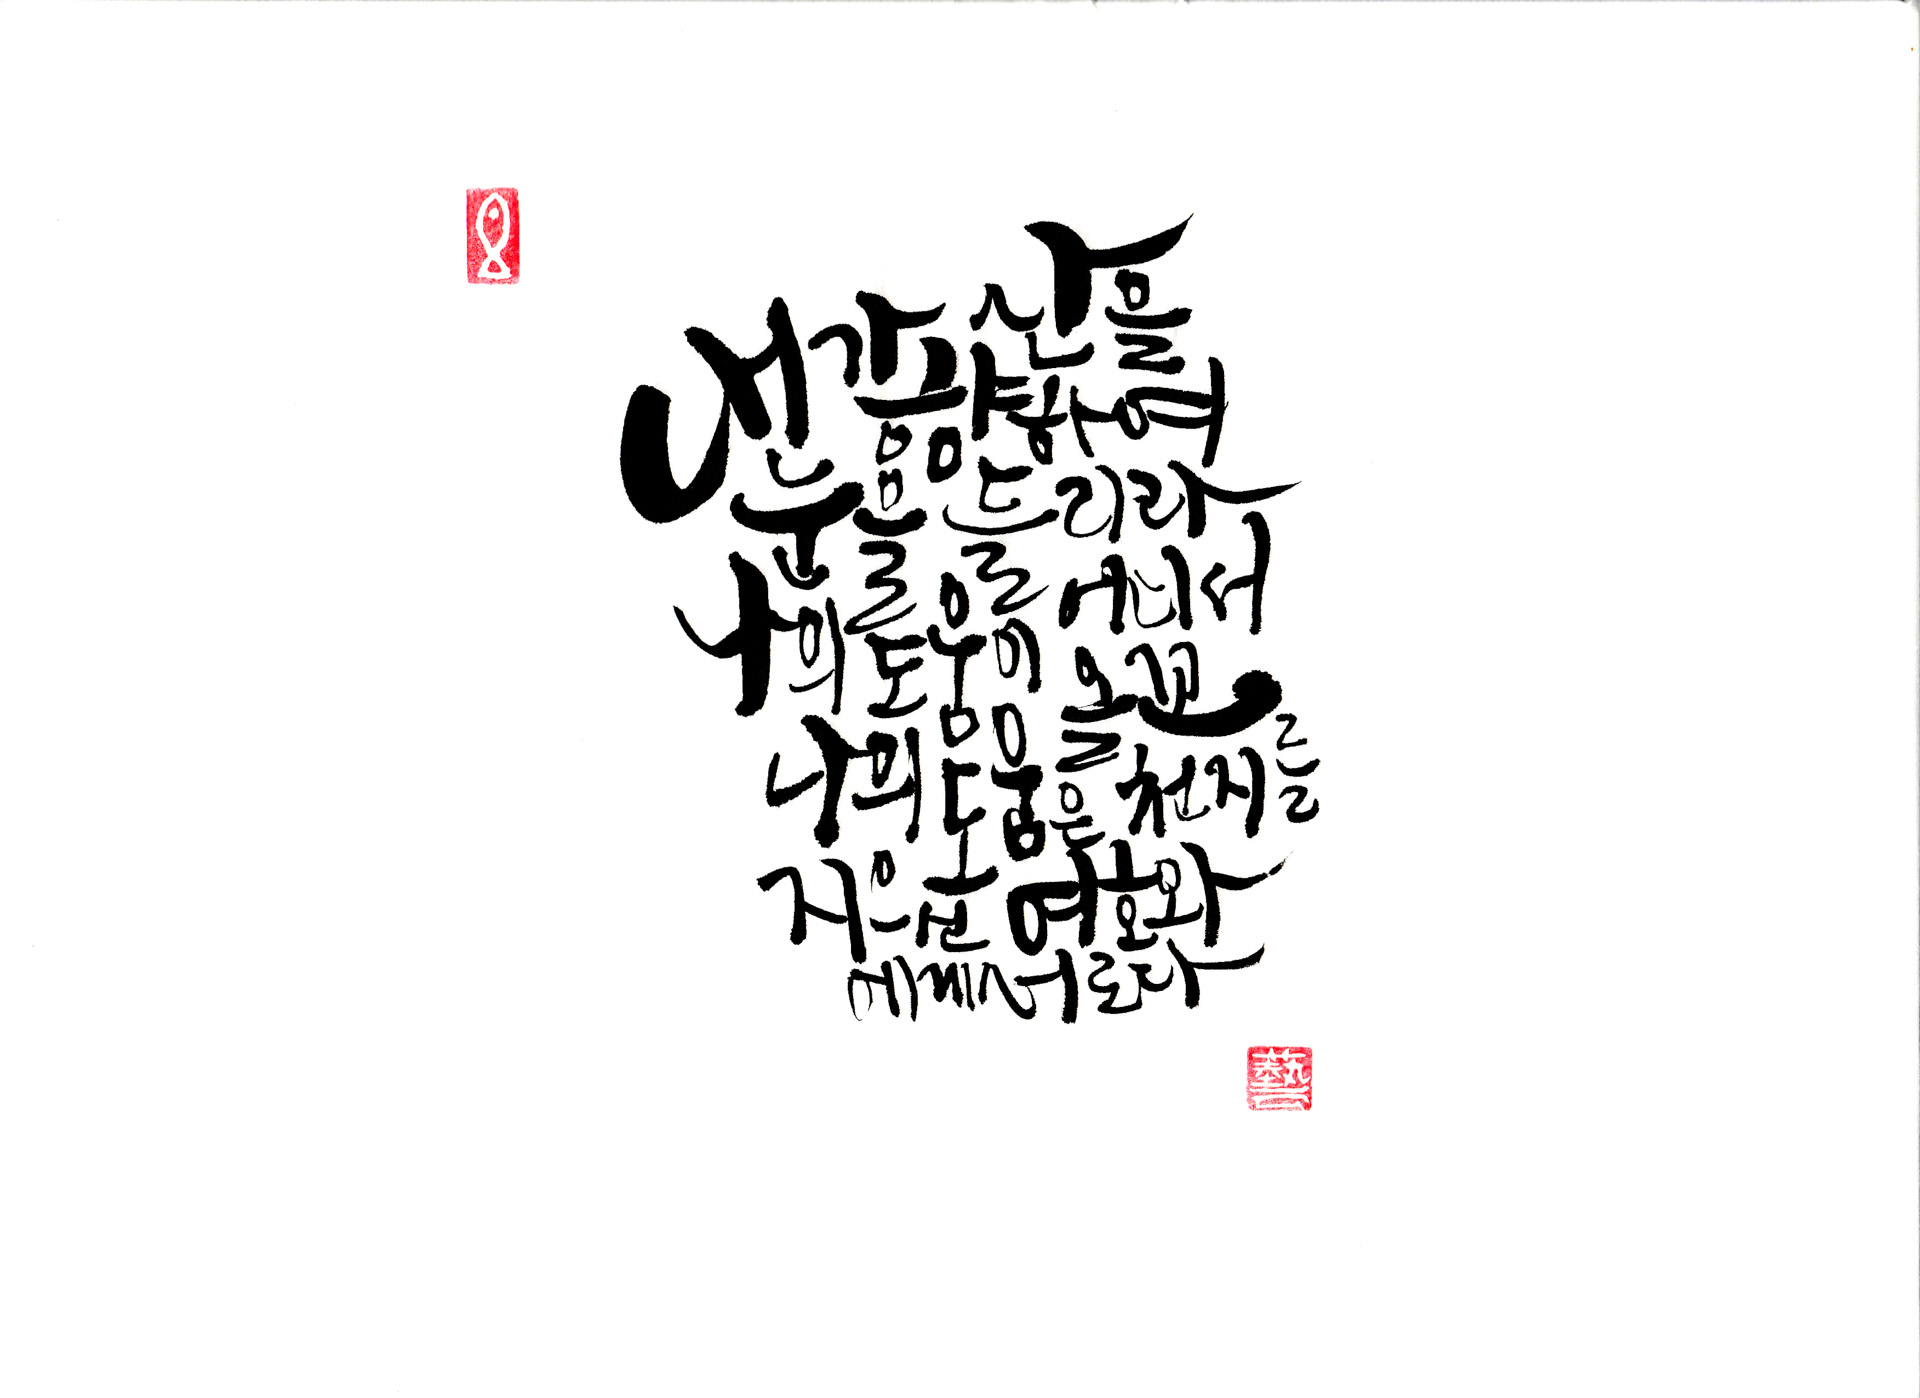 내가 산을
향하여
눈을 들리라
나의 도움이 어디서
올꼬
나의 도움은 천지를
지으신 여호와
에게서로다
藝